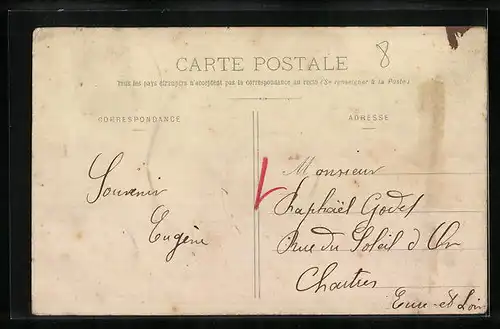 8
CARTE POSTALE
Tous les pays étrangers n'acceptent pas la correspondance au recto (Se renseigner à la Poste)
CORRESPONDANCE
ADRESSE
Souvenir
Eugène
Monsieur
Raphaël Godet
Rue du Soleil d'Or
Chartres
Eure-et-Loir